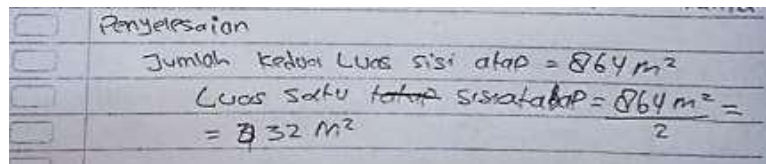 Penyelesaian
Jumlah kedua Luas sisi atap = 864 m²
Luas satu sisi atap = 864 m² / 2 =
= 432 m²